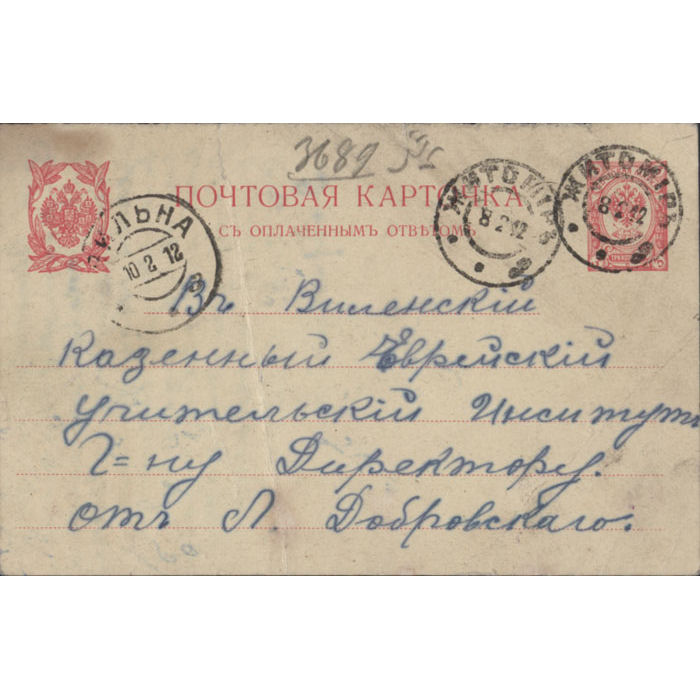 3689
ПОЧТОВАЯ КАРТОЧКА
СЪ ОПЛАЧЕННЫМЪ ОТВѢТОМЪ
ВИЛЬНА
10 2 12
ЖИТОМІРЪ
8 2 12
ЖИТОМІРЪ
8 2 12
Въ Виленскій
Казенный Еврейскій
Учительскій Инситутъ
Г=ну Директору.
отъ Л. Добровскаго.